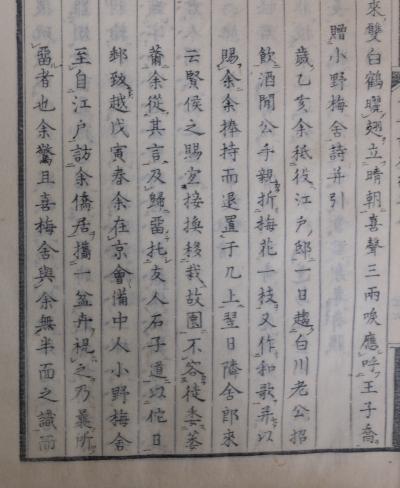 來雙白鶴曬翅立晴朝喜聲三兩喚應呼王子喬
贈小野梅舍詩并引
歲乙亥余祗役江戸邸一日趨白川老公招
飲酒闌公手親折梅花一枝又作和歌并以
賜余余捧持而退置于几上翌日隣舍郎來
云賢侯之賜宜接換移我故園不容徒委萎
薾余從其言及歸畱托友人石子道以佗日
郵致越戊寅春余在京會備中人小野梅舍
至自江戸訪余僑居攜一盆卉視之乃曩所
畱者也余驚且喜梅舍與余無半面之識而